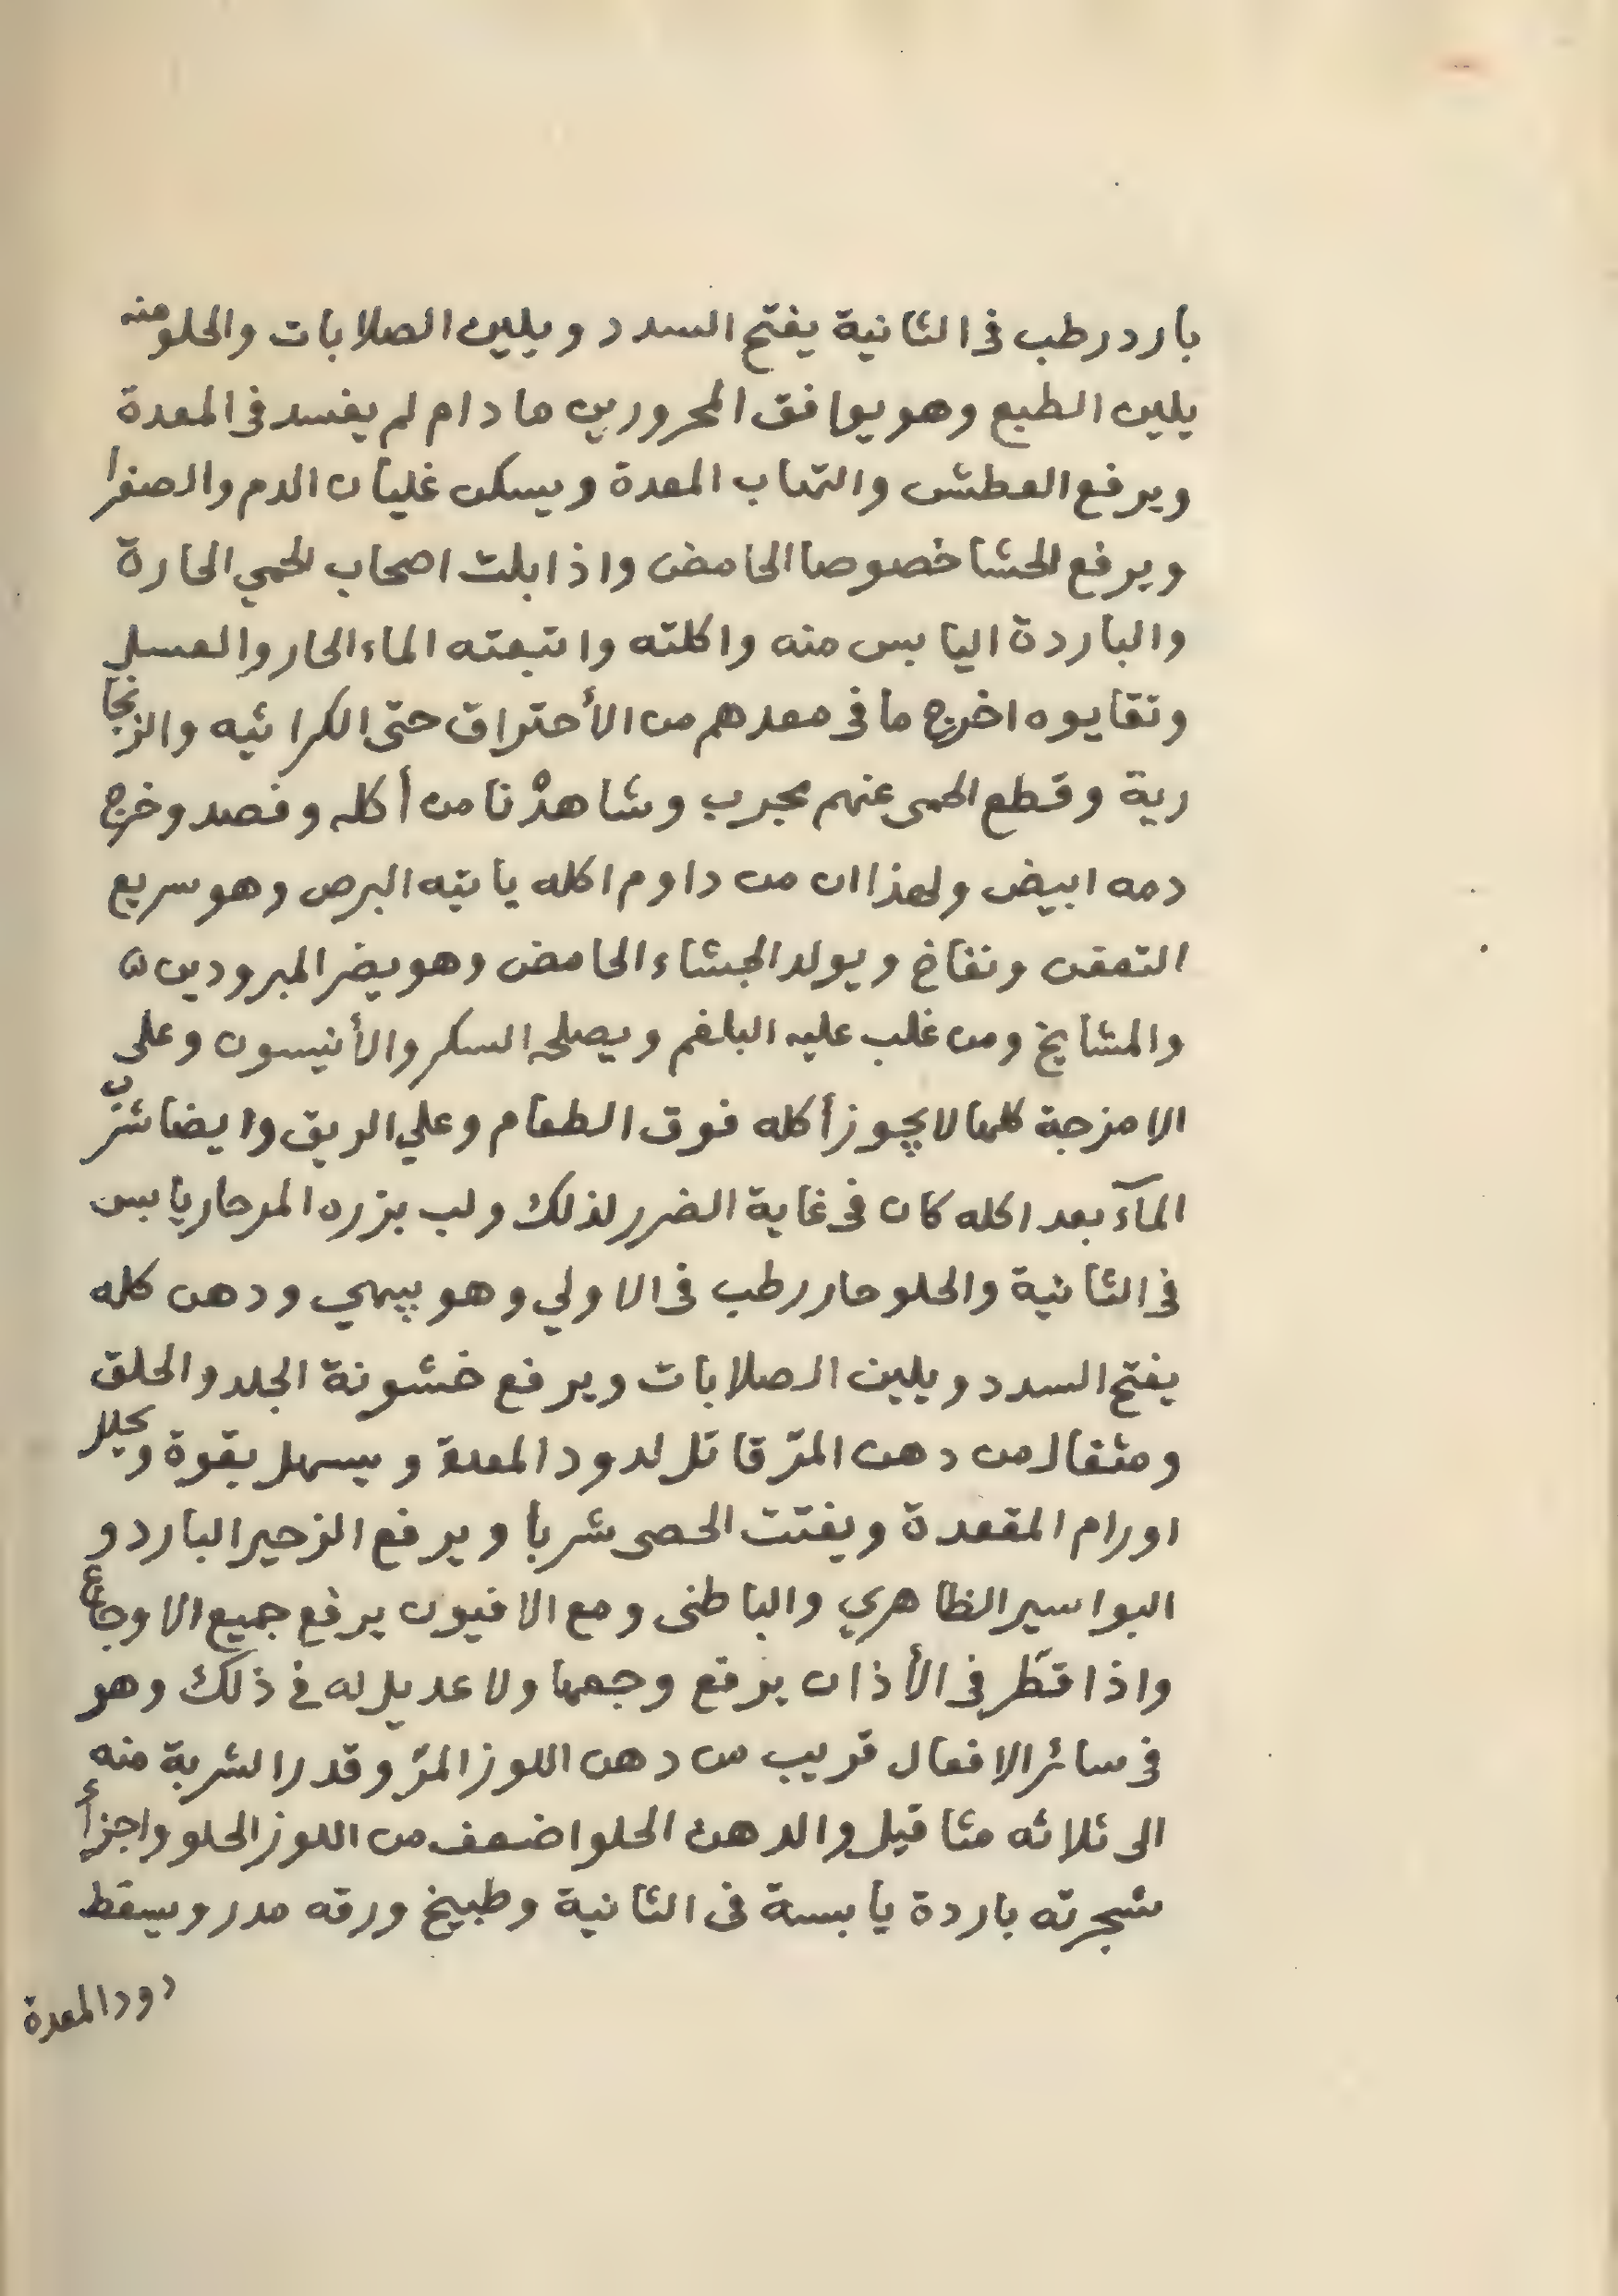 بارد رطب فى الثانية يفتح السدد ويلين الصلابات والحلو منه
يلين الطبع وهو يوافق المحرورين ما دام لم يفسد فى المعدة
ويرفع العطش والتهاب المعدة ويسكن غليان الدم والصفرا
ويرفع الحشا خصوصا الحامض واذا بلت اصحاب الحمي الحارة
والباردة اليابس منه واكلته واتبعته الماء الحار والعسل
وتقايوه اخرج ما فى معدهم من الأحتراق حتى الكراثيه والزنجا
رية وقطع الحمى عنهم مجرب وشاهدْنا من أكله وفصد وخرج
دمه ابيض ولهذا ان من داوم اكله ياتيه البرص وهو سريع
التعفن ونفاخ ويولد الجشاء الحامض وهو يضر المبرودين
والمشايخ ومن غلب عليه البلغم ويصلحه السكر والأنيسون وعلى
الامزجة كلها لا يجوز أكله فوق الطعام وعلي الريق وايضا شرب
المآء بعد اكله كان فى غاية الضرر لذلك ولب بزره المر حار يابس
فى الثانية والحلو حار رطب فى الاولي وهو يبهي ودهن كله
يفتح السدد ويلين الصلابات ويرفع خشونة الجلد والحلق
ومثقال من دهن المرّ قاتل لدود المعدة ويسهل بقوة ويحلل
اورام المقعدة ويفتت الحصى شربا ويرفع الزحير البارد و
البواسير الظاهري والباطنى ومع الافيون يرفع جميع الاوجاع
واذا قطّر فى الأذان يرفع وجعها ولا عديل له فى ذلك وهو
فى سائر الافعال قريب من دهن اللوز المرّ وقدر الشربة منه
الى ثلاثه مثاقيل والدهن الحلو اضعف من اللوز الحلو واجزأء
شجرته باردة يابسة فى الثانية وطبيخ ورقه مدر ويسقط
دود المعدة